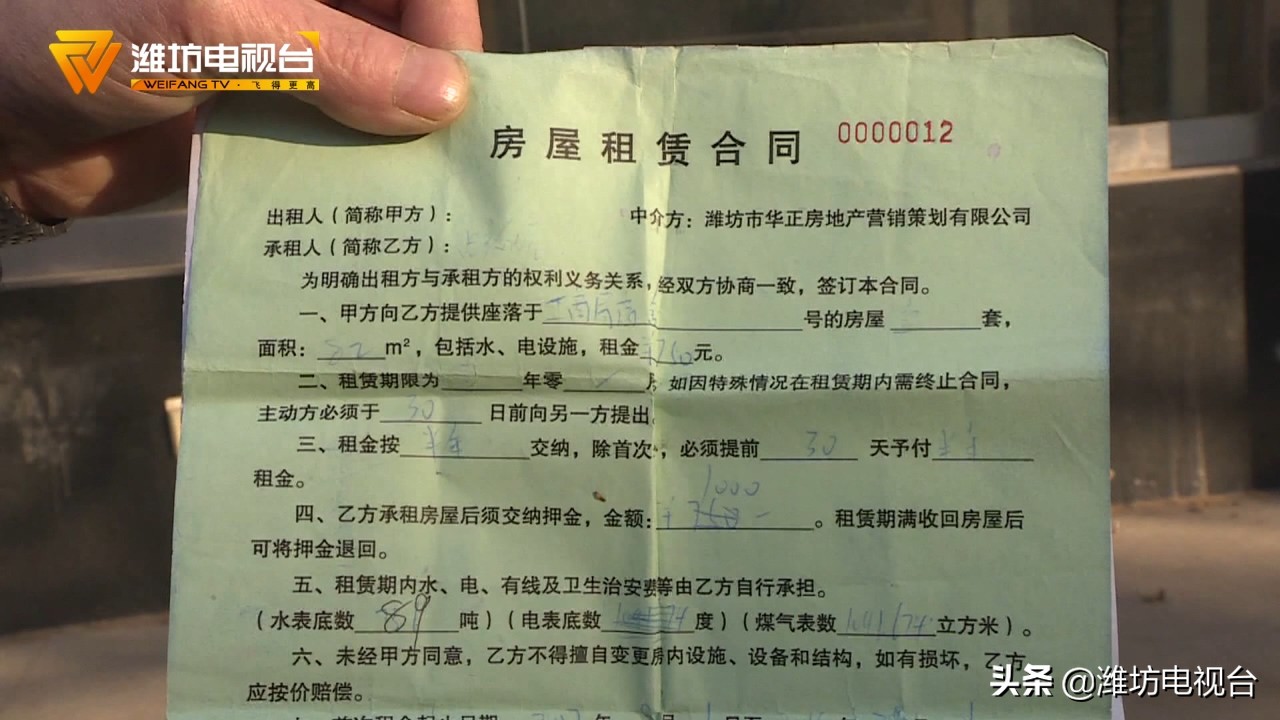 潍坊电视台
WEIFANG TV · 飞得更高
房屋租赁合同 0000012
出租人（简称甲方）： 中介方：潍坊市华正房地产营销策划有限公司
承租人（简称乙方）：
为明确出租方与承租方的权利义务关系，经双方协商一致，签订本合同。
一、甲方向乙方提供座落于 号的房屋 套，
面积： m²，包括水、电设施，租金 元。
二、租赁期限为 年零 月，如因特殊情况在租赁期内需终止合同，
主动方必须于 30 日前向另一方提出。
三、租金按 半年 交纳，除首次，必须提前 30 天予付 半年
租金。
1000
四、乙方承租房屋后须交纳押金，金额： 。租赁期满收回房屋后
可将押金退回。
五、租赁期内水、电、有线及卫生治安费等由乙方自行承担。
（水表底数 89 吨）（电表底数 度）（煤气表数 立方米）。
六、未经甲方同意，乙方不得擅自变更房内设施、设备和结构，如有损坏，乙方
应按价赔偿。
头条 @潍坊电视台